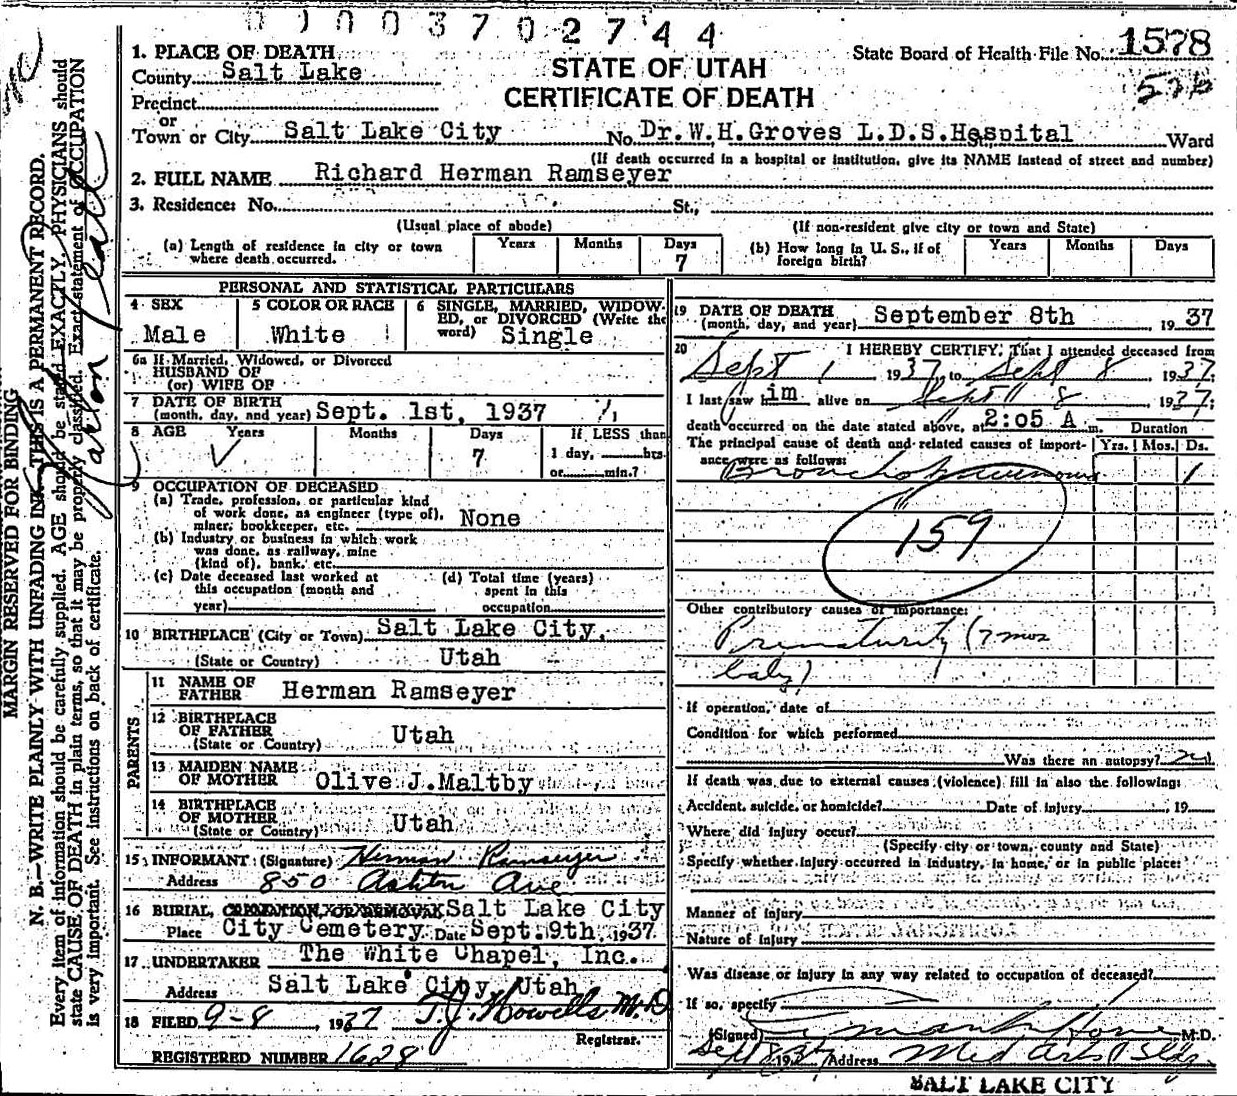 0 1 0 0 3 7 0 2 7 4 4
1. PLACE OF DEATH
State Board of Health File No. 1578
County Salt Lake
STATE OF UTAH
Precinct
CERTIFICATE OF DEATH
or
Town or City Salt Lake City No. Dr. W. H. Groves L.D.S. Hospital St., Ward
(If death occurred in a hospital or institution, give its NAME instead of street and number)
2. FULL NAME Richard Herman Ramseyer
3. Residence: No. St.,
(Usual place of abode) (If non-resident give city or town and State)
(a) Length of residence in city or town where death occurred. Years Months Days 7
(b) How long in U. S., if of foreign birth? Years Months Days
PERSONAL AND STATISTICAL PARTICULARS
4 SEX Male
5 COLOR OR RACE White
6 SINGLE, MARRIED, WIDOWED, or DIVORCED (Write the word) Single
6a If Married, Widowed, or Divorced
HUSBAND OF
(or) WIFE OF
7 DATE OF BIRTH
(month, day, and year) Sept. 1st, 1937
8 AGE Years Months Days 7
If LESS than
1 day, hrs.
or min.?
9 OCCUPATION OF DECEASED
(a) Trade, profession, or particular kind
of work done, as engineer (type of),
miner, bookkeeper, etc. None
(b) Industry or business in which work
was done, as railway, mine
(kind of), bank, etc.
(c) Date deceased last worked at
this occupation (month and
year)
(d) Total time (years)
spent in this
occupation
10 BIRTHPLACE (City or Town) Salt Lake City,
(State or Country) Utah
PARENTS
11 NAME OF
FATHER Herman Ramseyer
12 BIRTHPLACE
OF FATHER
(State or Country) Utah
13 MAIDEN NAME
OF MOTHER Olive J. Maltby
14 BIRTHPLACE
OF MOTHER
(State or Country) Utah
15 INFORMANT (Signature) Herman Ramseyer
Address 850 Ashton Ave
16 BURIAL, CREMATION, OR REMOVAL Salt Lake City
Place City Cemetery Date Sept. 9th, 1937
17 UNDERTAKER The White Chapel, Inc.
Address Salt Lake City, Utah
18 FILED 9-8, 1937 T. J. Howells M.D.
Registrar.
REGISTERED NUMBER 1628
19 DATE OF DEATH
(month, day, and year) September 8th 1937
20 I HEREBY CERTIFY, That I attended deceased from
Sept 1 1937, to Sept 8 1937;
I last saw him alive on Sept 8 1937;
death occurred on the date stated above, at 2:05 A m. Duration
The principal cause of death and related causes of importance were as follows: Yrs. Mos. Ds.
Bronchopneumonia 1
159
Other contributory causes of importance:
Prematurity (7 mos
baby)
If operation, date of
Condition for which performed
Was there an autopsy? no
If death was due to external causes (violence) fill in also the following:
Accident, suicide, or homicide? Date of injury , 19
Where did injury occur?
(Specify city or town, county and State)
Specify whether injury occurred in industry, in home, or in public place:
Manner of Injury
Nature of Injury
Was disease or injury in any way related to occupation of deceased?
If so, specify
(Signed) M.D.
Sept 8 1937 Address Med Arts Bldg
SALT LAKE CITY
MARGIN RESERVED FOR BINDING
N. B.—WRITE PLAINLY WITH UNFADING INK—THIS IS A PERMANENT RECORD.
Every item of information should be carefully supplied. AGE should be stated EXACTLY. PHYSICIANS should
state CAUSE OF DEATH in plain terms, so that it may be properly classified. Exact statement of OCCUPATION
is very important. See instructions on back of certificate.